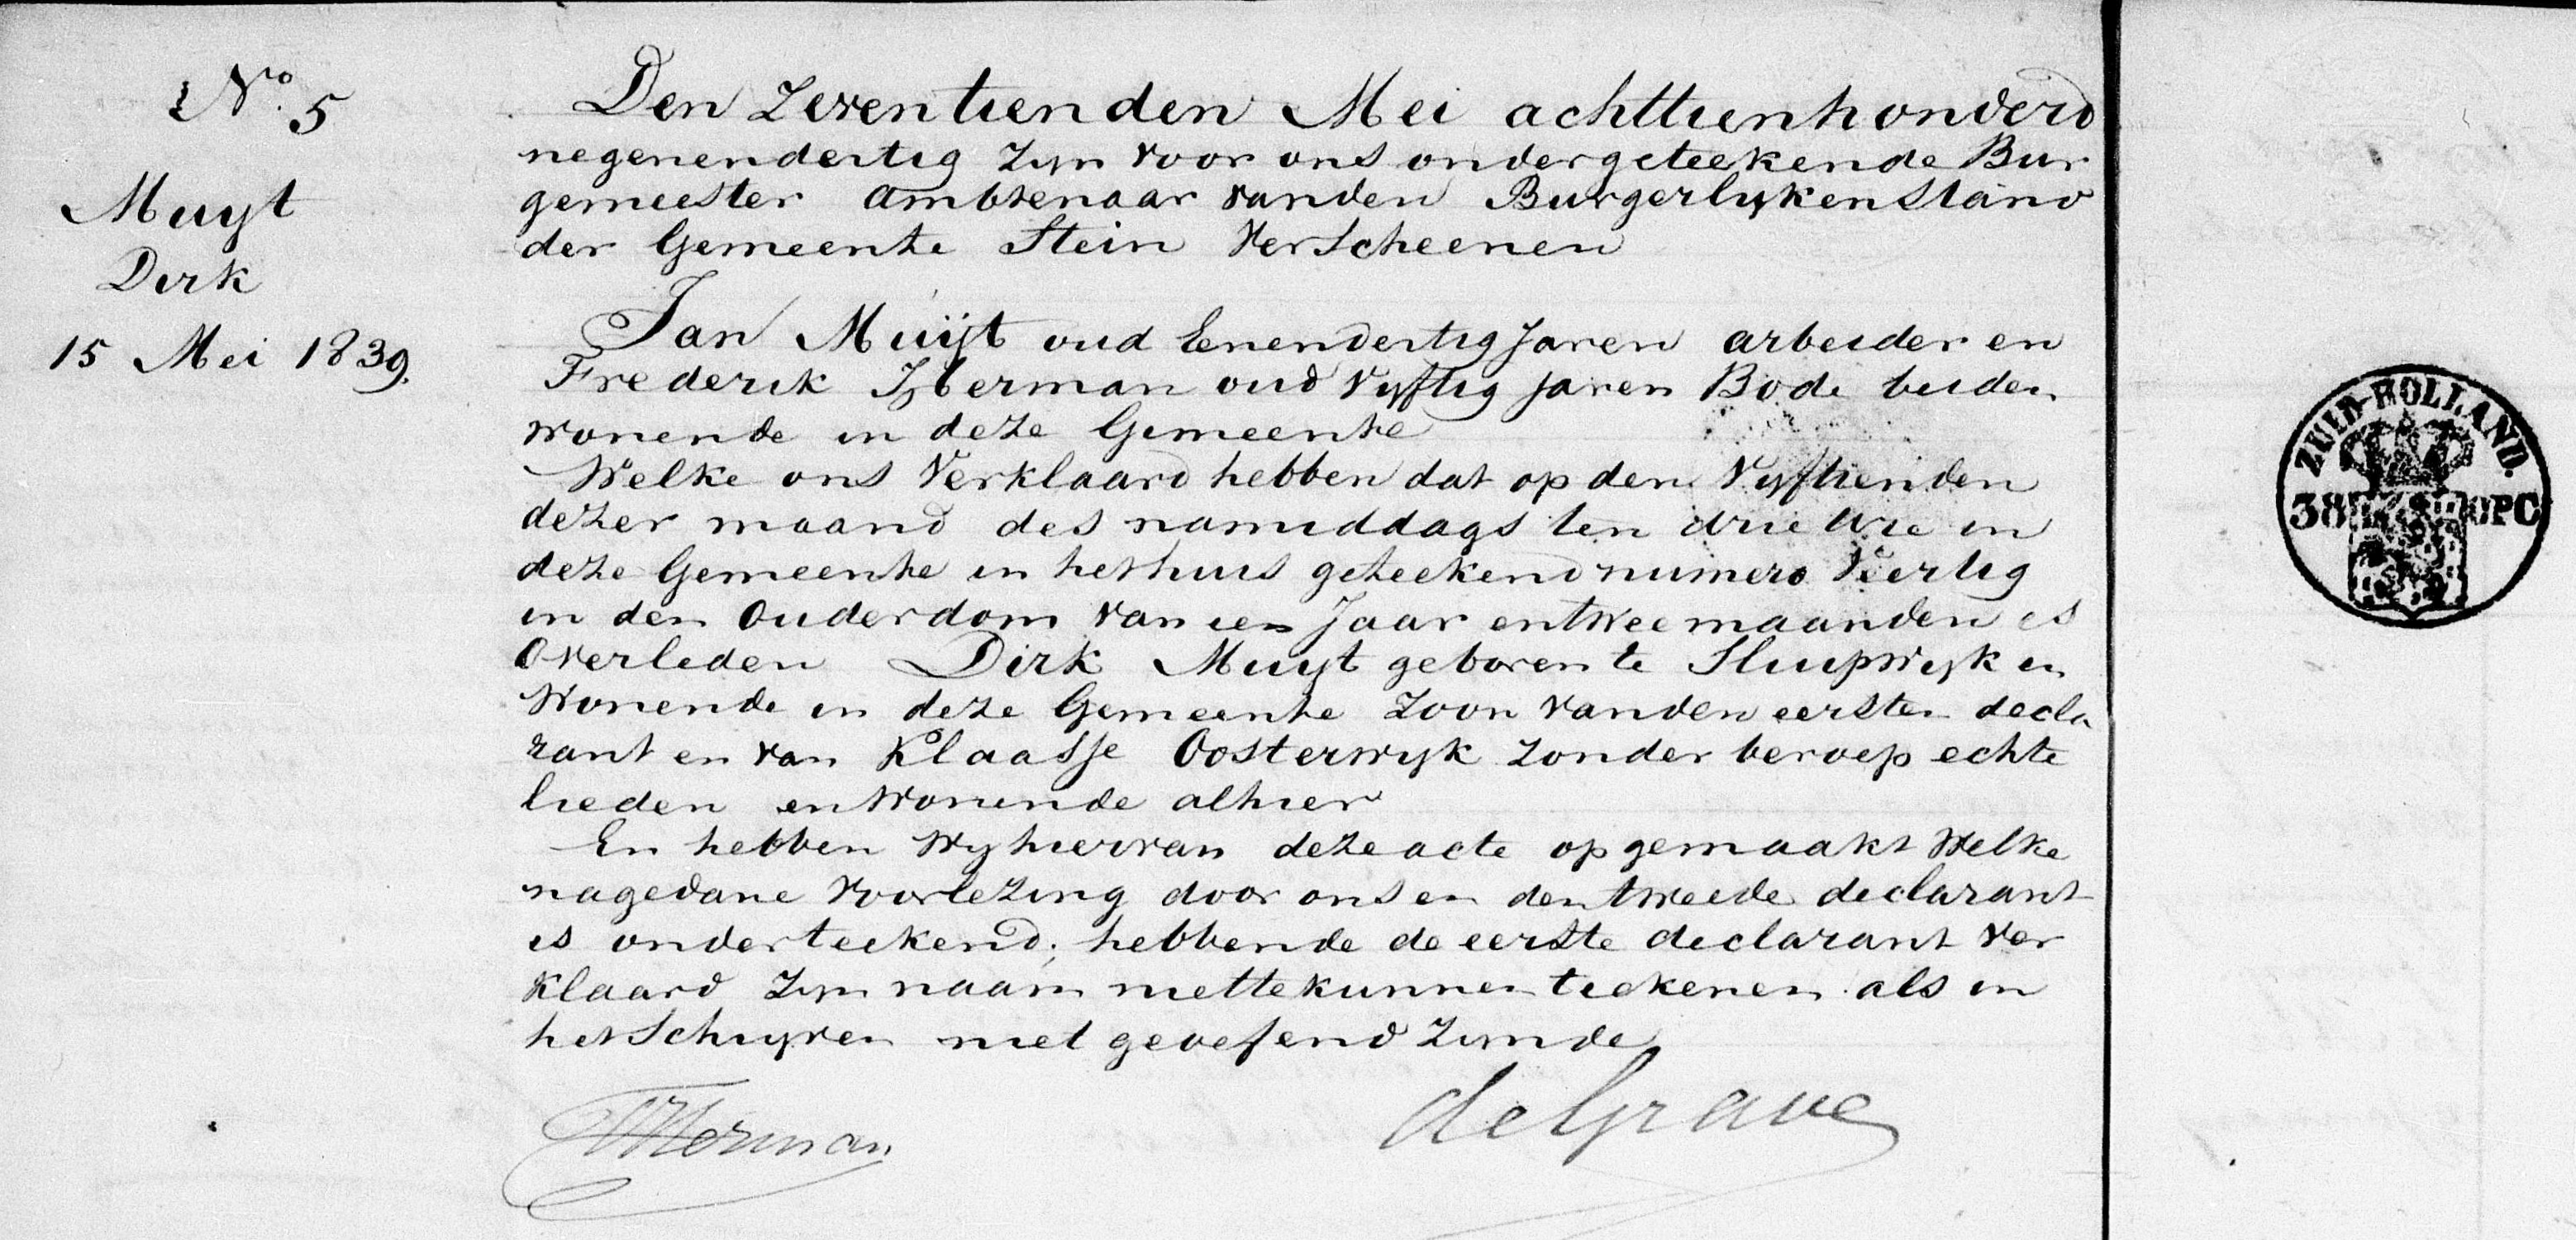 No. 5
Muyt
Dirk
15 Mei 1839.
Den Zeventienden Mei achttienhonderd
negenendertig zyn voor ons ondergeteekende Bur
gemeester Ambtenaar vanden Burgerlyken Stand
der Gemeente Stein Verscheenen
Jan Muijt oud Eenendertig Jaren arbeider en
Frederik IJserman oud Vyftig jaren Bode beiden
wonende in deze Gemeente
Welke ons Verklaard hebben dat op den Vyftienden
dezer maand des namiddags ten drie Ure in
deze Gemeente in het huis geteekend numero Veertig
in den Ouderdom van een Jaar en twee maanden is
Overleden Dirk Muyt geboren te Sluipwyk en
Wonende in deze Gemeente Zoon vanden eersten decla
rant en van Klaasje Oosterwyk zonder beroep echte
lieden en Wonende alhier
En hebben Wy hiervan deze acte opgemaakt Welke
na gedane Voorlezing door ons en den tweede declarant
is onderteekend; hebbende de eerste declarant Ver
klaard Zyn naam niet te kunnen teekenen als in
het Schryven niet geoefend Zynde
de Grave
ZUID-HOLLAND.
38 OPC